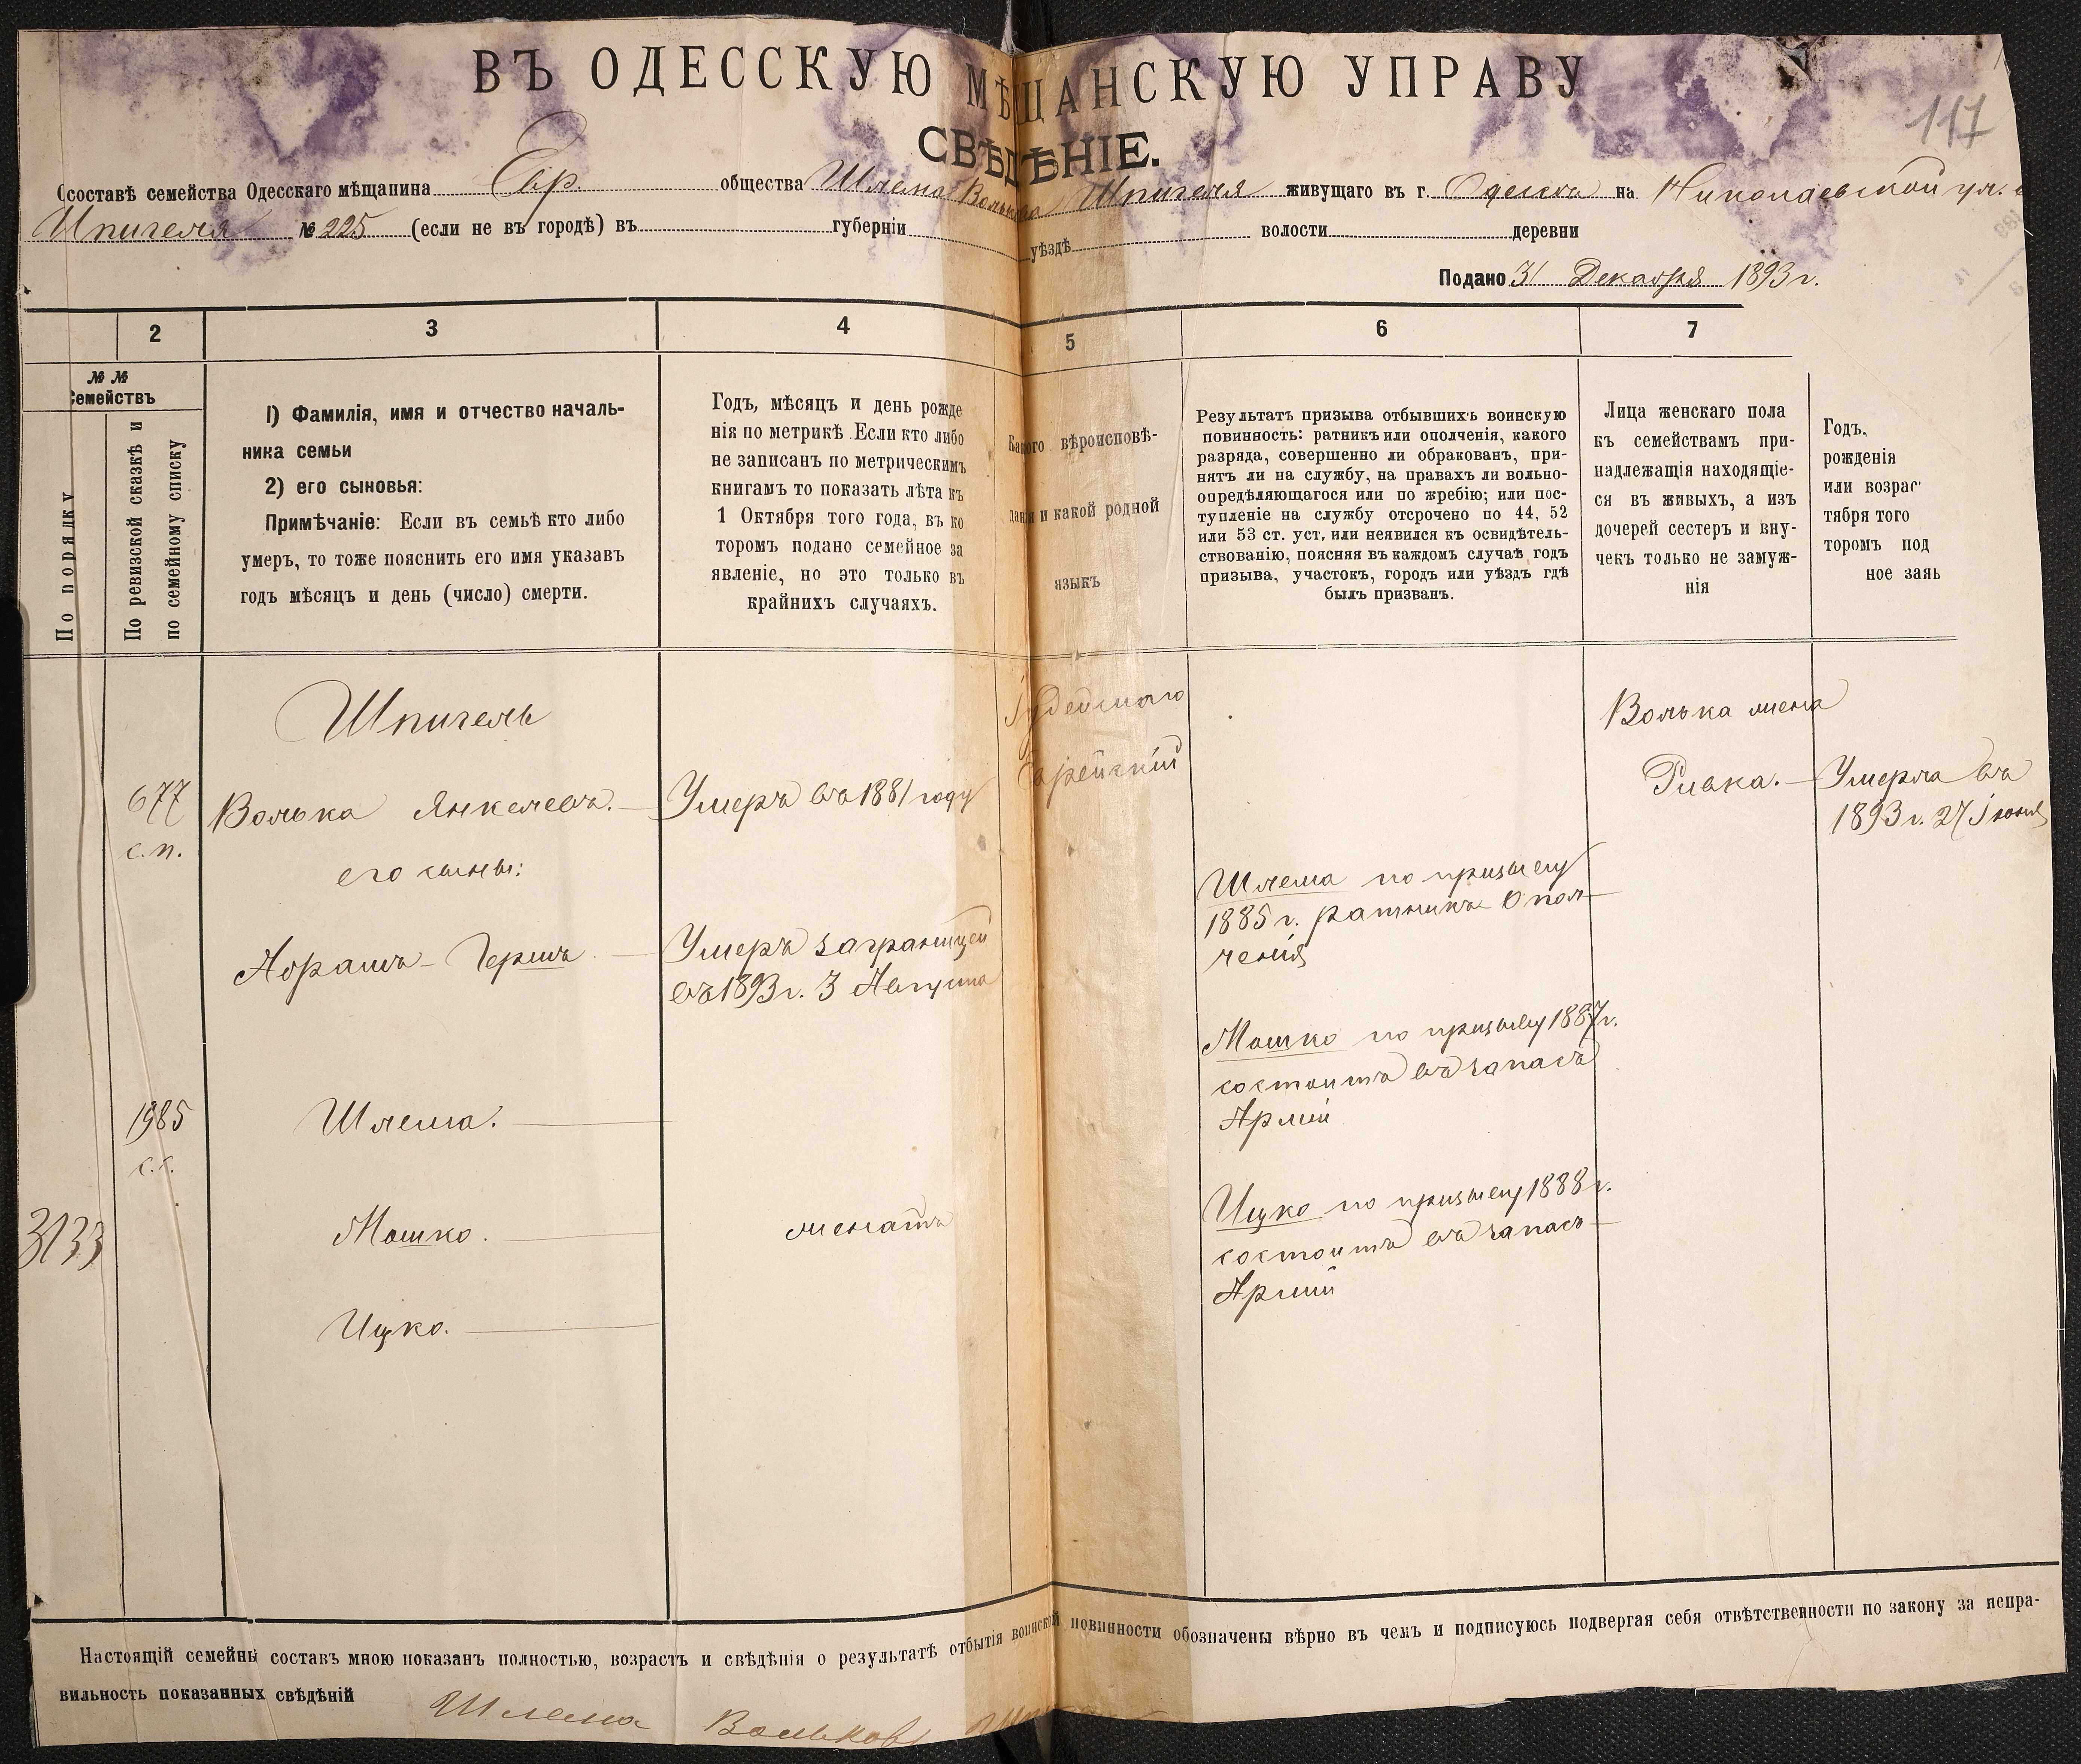 ВЪ ОДЕССКУЮ МѢЩАНСКУЮ УПРАВУ
117
СВѢДѢНІЕ.
составѣ семейства Одесскаго мѣщанина Евр. общества Шлема Волькова Шпигеля живущаго въ г. Одессѣ на Николаевской ул.
Шпигеля № 225 (если не въ городѣ) въ губерніи уѣздѣ волости деревни
Подано 31 Декабря 1893 г.
2 3 4 5 6 7
№ №
Семействъ
По порядку
По ревизской сказкѣ и
по семейному списку
1) Фамилія, имя и отчество началь-
ника семьи
2) его сыновья:
Примѣчаніе: Если въ семьѣ кто либо
умеръ, то тоже пояснить его имя указавъ
годъ мѣсяцъ и день (число) смерти.
Годъ, мѣсяцъ и день рожде
нія по метрикѣ. Если кто либо
не записанъ по метрическимъ
книгамъ то показать лѣта къ
1 Октября того года, въ ко
торомъ подано семейное за
явленіе, но это только въ
крайнихъ случаяхъ.
Какого вѣроисповѣ-
данія и какой родной
языкъ
Результатъ призыва отбывшихъ воинскую
повинность: ратникъ или ополченія, какого
разряда, совершенно ли обракованъ, при-
нятъ ли на службу, на правахъ ли вольно-
опредѣляющагося или по жребію; или пос-
тупленіе на службу отсрочено по 44, 52
или 53 ст. уст. или неявился къ освидѣтель-
ствованію, поясняя въ каждомъ случаѣ годъ
призыва, участокъ, городъ или уѣздъ гдѣ
былъ призванъ.
Лица женскаго пола
къ семействамъ при-
надлежащія находящіе-
ся въ живыхъ, а изъ
дочерей сестеръ и вну-
чекъ только не замуж-
нія
Годъ,
рожденія
или возрас
тября того
торомъ под
ное заяв
Шпигель
677
с.п.
Волька Янкелевъ.
Умеръ въ 1881 году
его сыны:
Абрамъ-Гершъ
Умеръ заграницей
въ 1893 г. 3 Августа
1985
с.с.
Шлема.
3133
Мошко.
женатъ
Ицко.
Іудейскаго
Еврейскій
Шлема по призыву
1885 г. ратникъ Опол-
ченія
Мошко по призыву 1887 г.
состоитъ въ запасѣ
Арміи
Ицко по призыву 1888 г.
состоитъ въ запас
Арміи
Волька жена
Ривка.
Умерла въ
1893 г. 27 Іюня
Настоящій семейный составъ мною показанъ полностью, возрастъ и свѣдѣнія о результатѣ отбытія воинской повинности обозначены вѣрно въ чемъ и подписуюсь подвергая себя отвѣтственности по закону за непра-
вильность показанныхъ свѣдѣній
Шлема Вольковъ